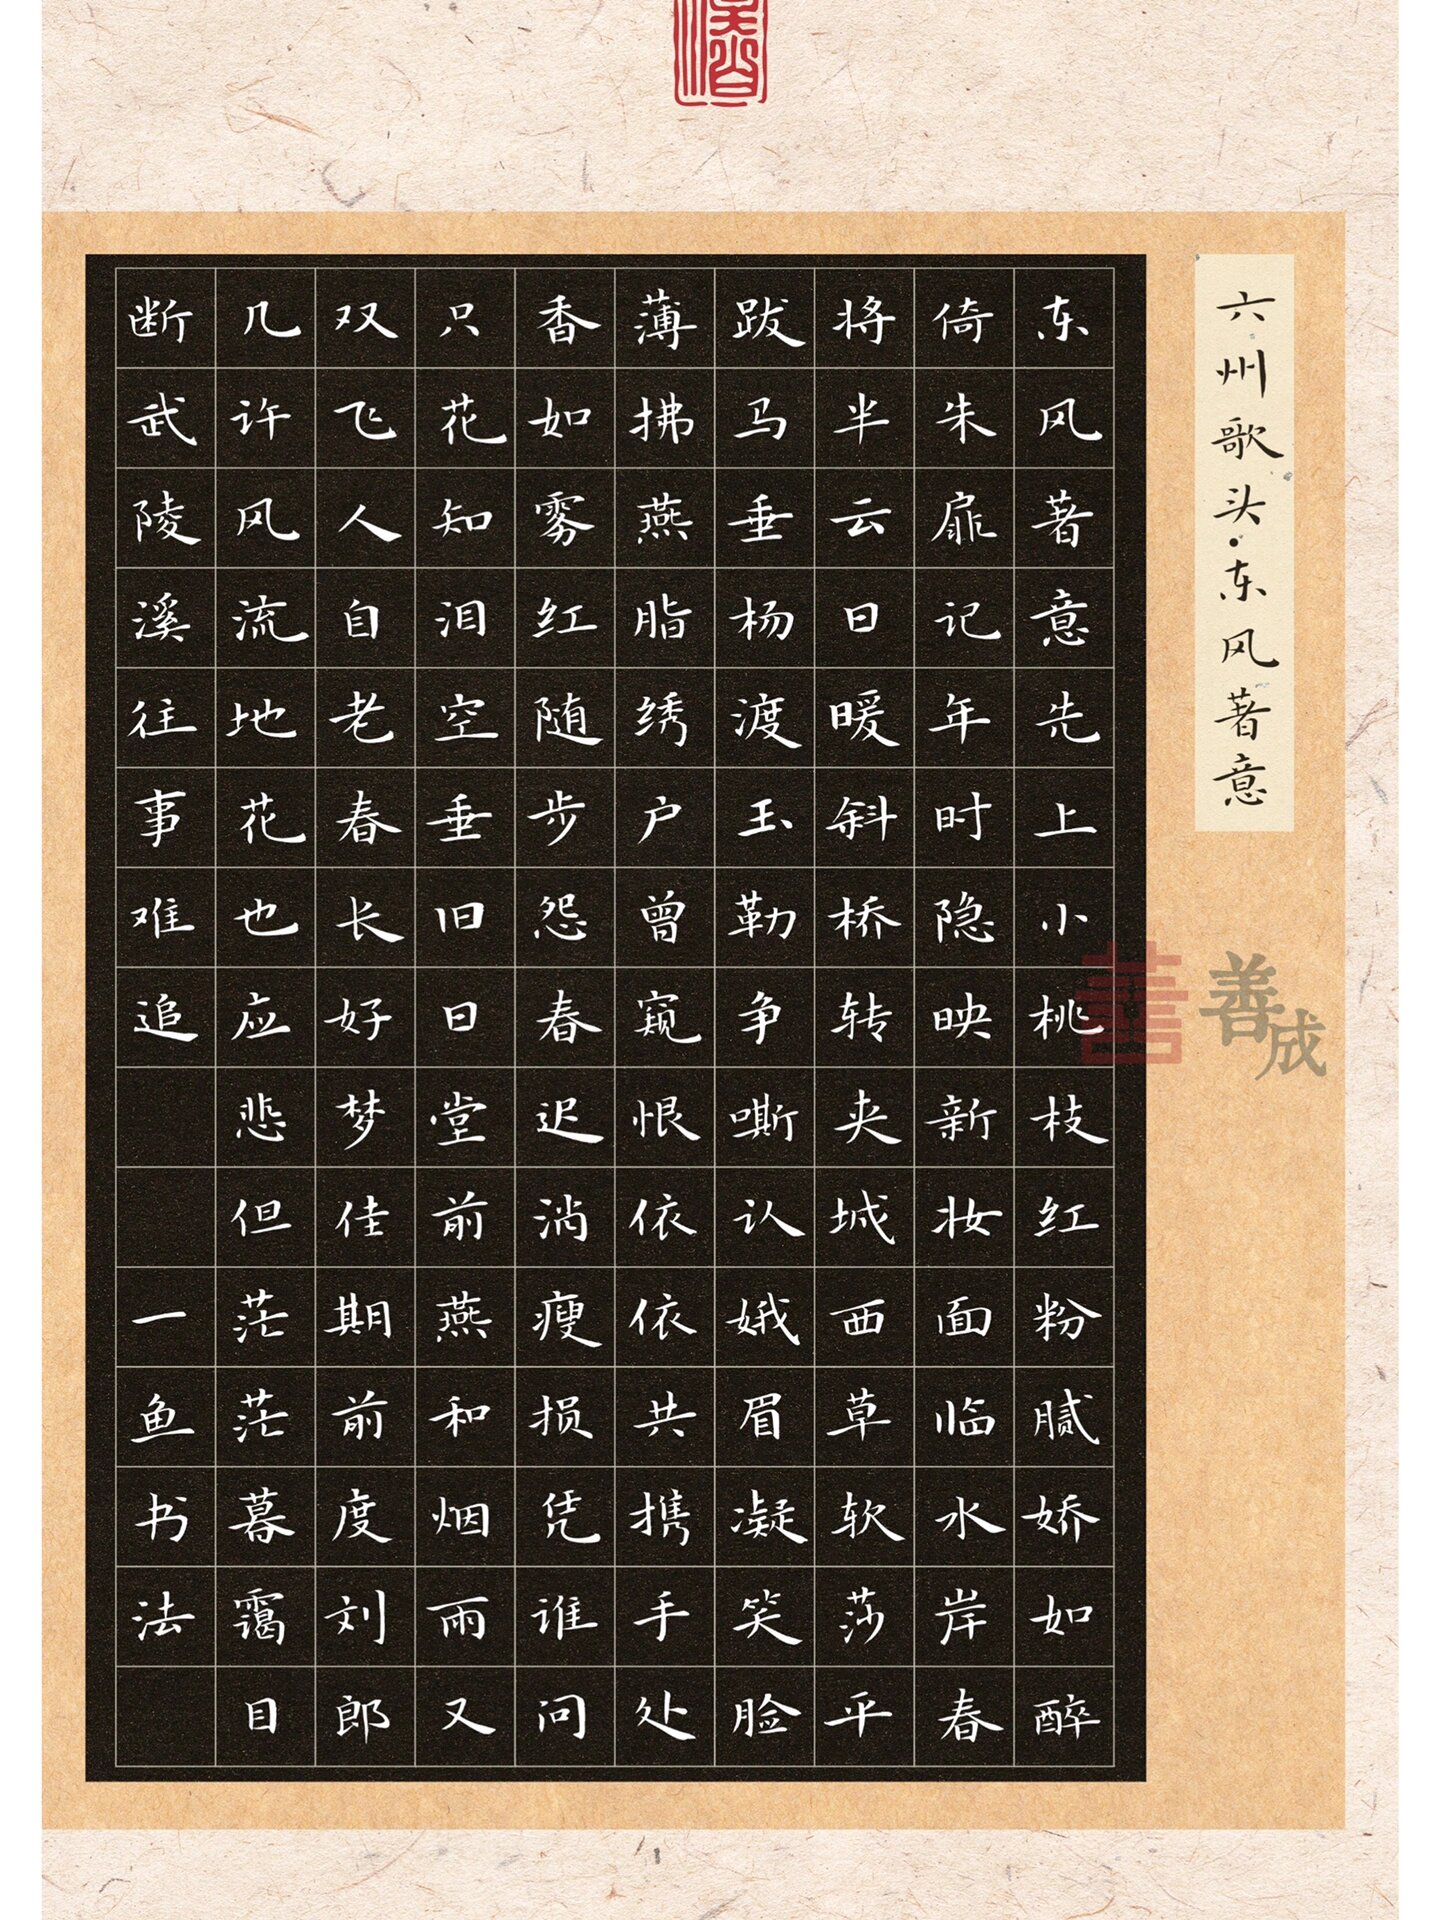 六州歌头·东风著意
东风著意先上小桃枝红粉腻娇如醉
倚朱扉记年时隐映新妆面临水岸春
将半云日暖斜桥转夹城西草软莎平
跋马垂杨渡玉勒争嘶认娥眉凝笑脸
薄拂燕脂绣户曾窥恨依依共携手处
香如雾红随步怨春迟淌瘦损凭谁问
只花知泪空垂旧日堂前燕和烟雨又
双飞人自老春长好梦佳期前度刘郎
几许风流地花也应悲但茫茫暮霭目
断武陵溪往事难追
一鱼书法
善成